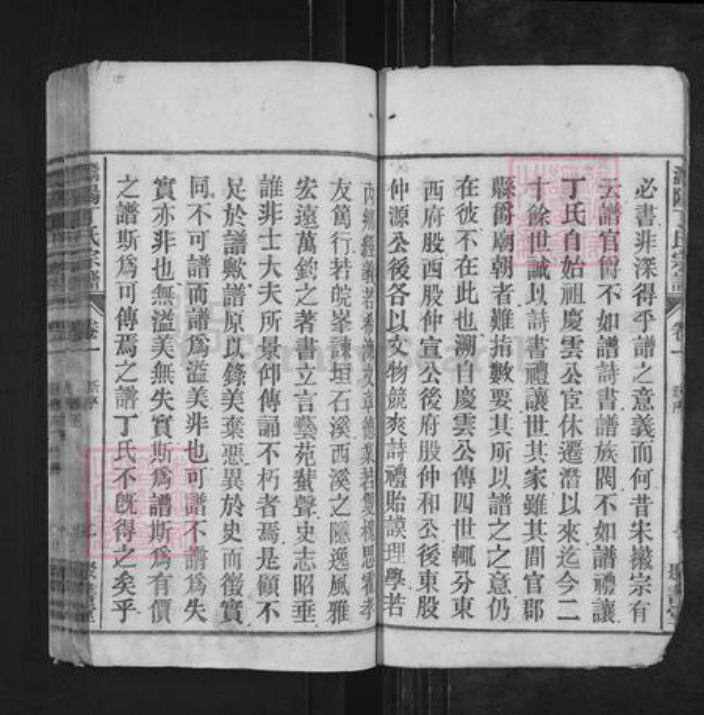 必書非深得乎譜之意義而何昔朱徽宗有
云譜官爵不如譜詩書譜族閥不如譜禮讓
丁氏自始祖慶雲公宦休遷潛以來迄今二
十餘世誠以詩書禮讓世其家雖其間官郡
縣爵廟朝者難指數要其所以譜之之意仍
在彼不在此也溯自慶雲公傳四世輒分東
西府股西股仲宣公後府股仲和公後東股
仲源公後各以文物競爽詩禮貽謨理學若
內經義若希文章德業若雙槐思霍孝
友篤行若皖峯諫垣石溪西溪之隱逸風雅
宏遠萬鈞之著書立言藝苑蜚聲史志昭垂
誰非士大夫所景仰傳誦不朽者焉是顧不
足於譜歟譜原以錄美棄惡異於史而徵實
同不可譜而譜爲溢美非也可譜不譜爲失
實亦非也無溢美無失實斯爲譜斯爲有價
之譜斯爲可傳焉之譜丁氏不旣得之矣乎
丁氏宗譜
卷一